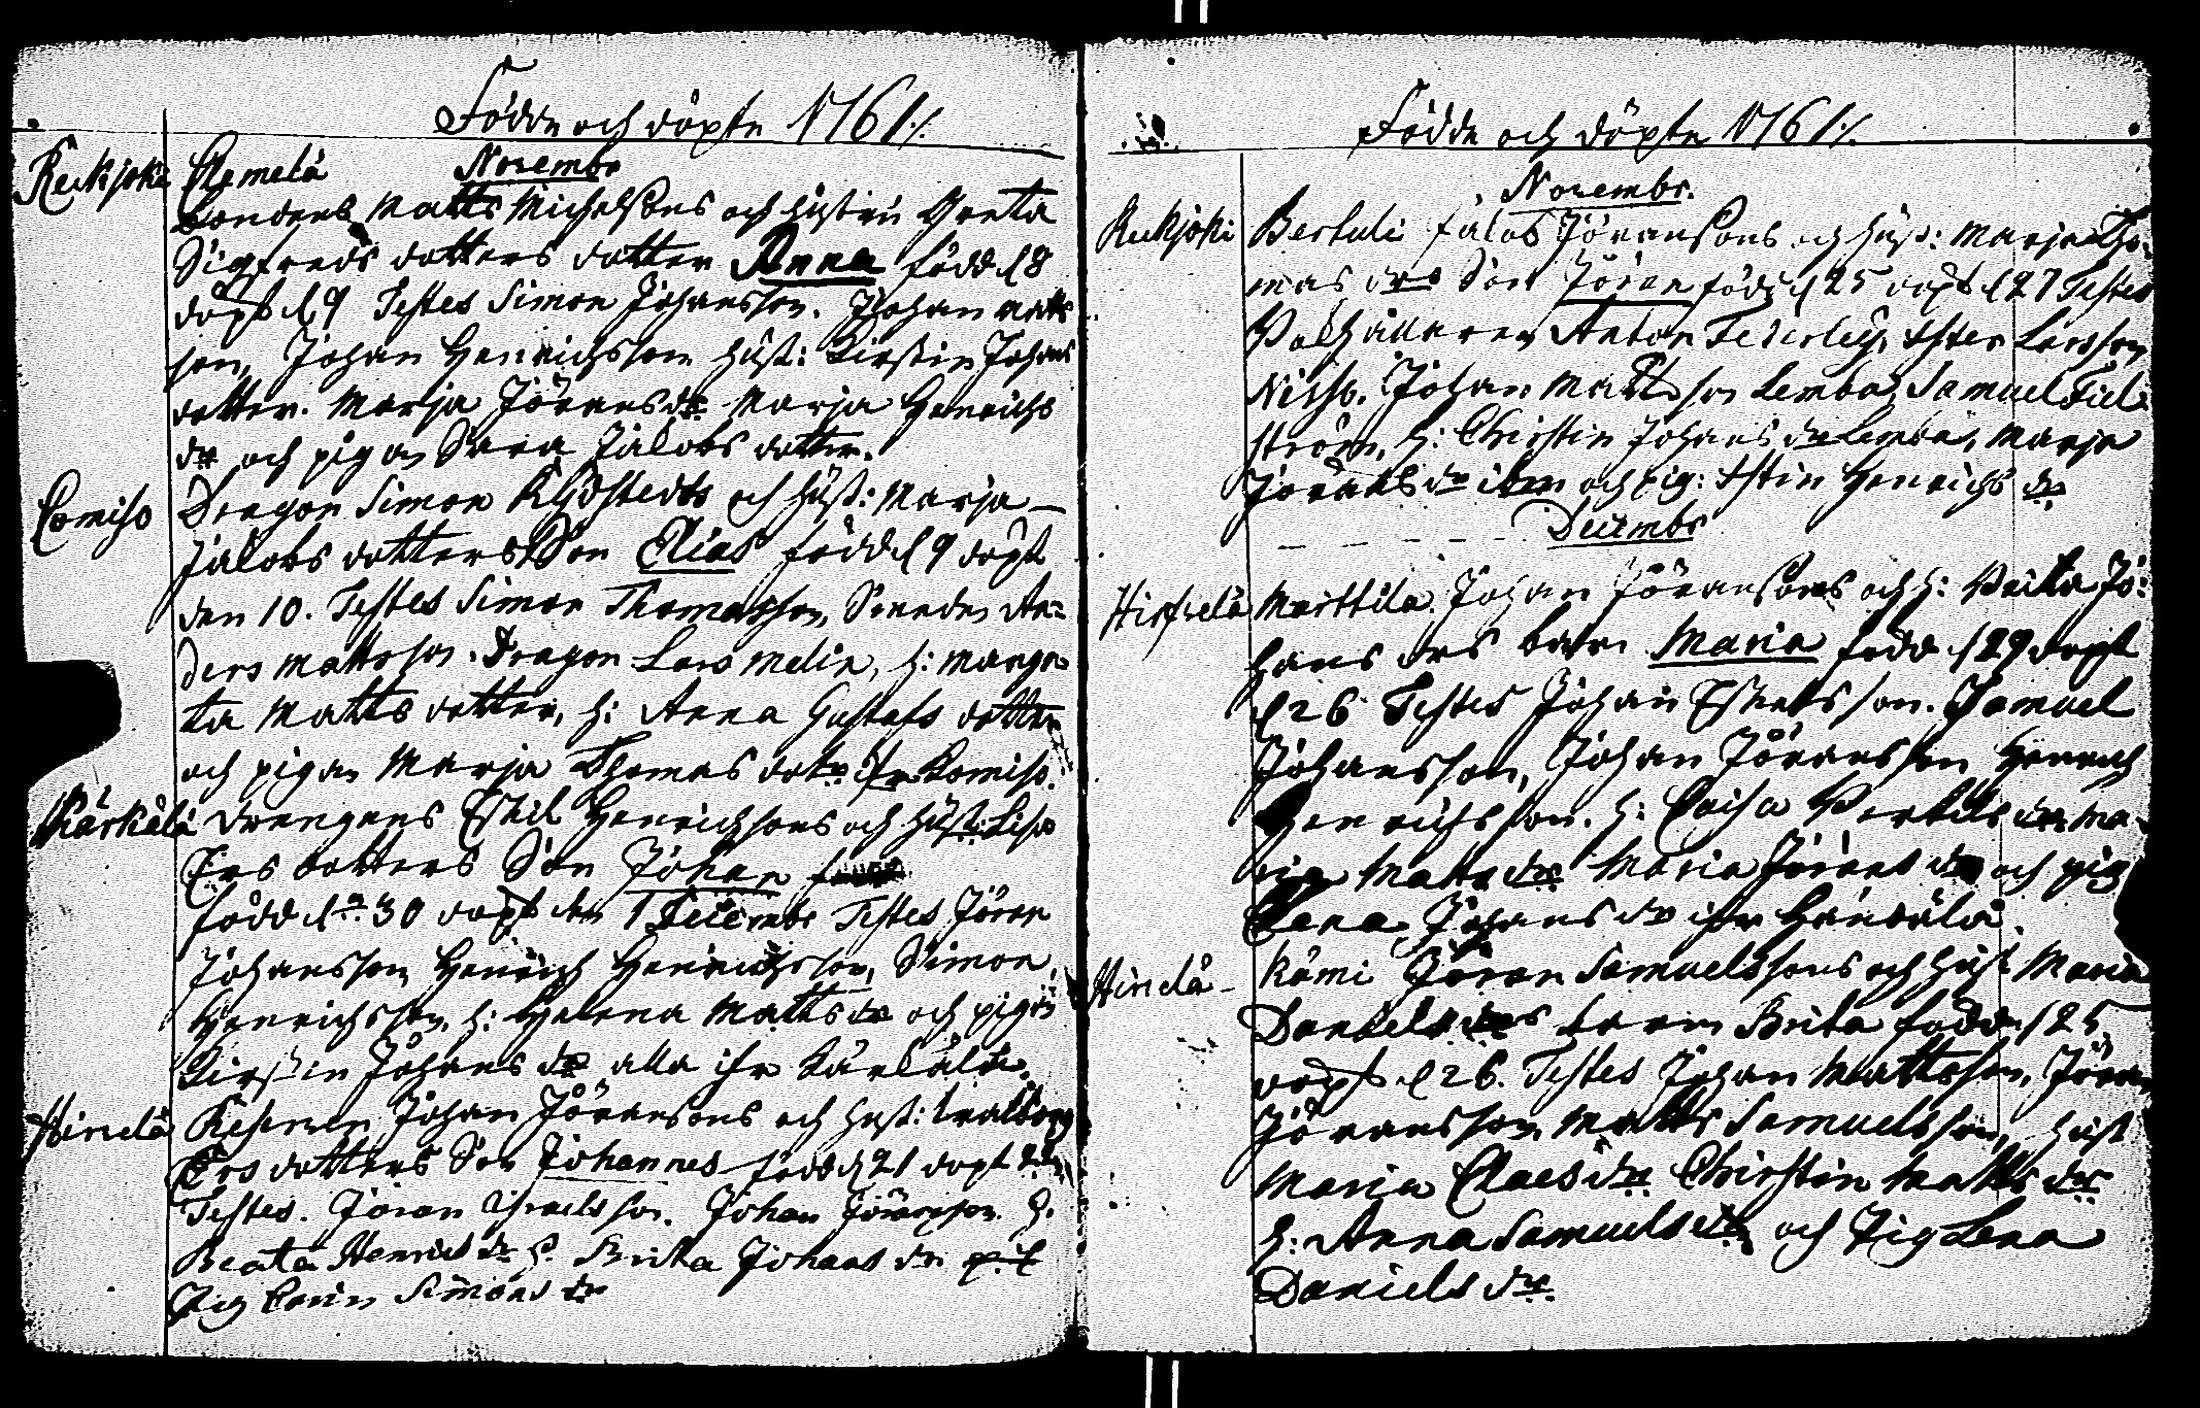 Födde och döpte 1761./.
Reckjoki Clemelä Novembr
bondens Matts Michelsons och hustru Greta
Sigfreds dotters dotter Anna född d 8
döpt d 9 Testes Simon Johansson. Johan Matts
son, Johan Henrichsson hust: Kirstin Johans
dotter. Marja Jöransdr Marja Henrichs
dr och pigan Sara Jacobs dotter.
Comiso Dragon Simon Klystedts och hust: Marja
Jacobs dotters Son Elias född d 9 döpt
den 10. Testes Simon Thomasson, An-
ders Mattsson. Dragon Lars Melin, h: Marga
ta Matts dotter, h: Anna Gustafs dotter
och pigan Marja Thomas dotr ifr Komiso.
Kärkälä drengens Eskil Henrichsons och hust: Lisa
Ers dotters Son Johan
född dn 30 döpt den 1 Decembr Testes Jöran
Johansson Henrich Henrichsson, Simon
Henrichsson, h: Helena Matts dr och pigan
Kirstin Johans dr alla ifr
Hirvelä Johan Jöransons och hust: Walborg
Ers dotters Son Johannes född d 21 döpt
Testes. Jöran Johan Jöransson. h.
Beata Henrics dr h. Brita Johans dr
Pig Carin Simons dr
Födde och döpte 1761./.
Novembr.
Reckjoki Bertuli Jacob Jöransons och hust: Marja Tho-
mas drs Son Jöran född d 25 döpt d 27 Testes
Anton Larsson
Johan Mattsson Lemba, Samuel
ström, h: Christin Johans dr Lemba, Marja
Jörans dr ibm och pig: Stin Henrichs dr
Decembr
Marttila Johan Jöransons och h: Jo-
hans drs barn Maria född d döpt
d 26 Testes Johan Eskelsson. Samuel
Johansson, Johan Jöransson Henrich
Henrichsson. h: Caisa Bertils dr Ma-
ria Matts dr Maria Jörans dr och pig
Lena Johans dr ifr
Hirvelä Kämi Jöran Samuelssons och hust Maria
Daniels drs barn Brita född d 25
döpt d 26. Testes Johan Mattsson, Jöran
Jöransson Matts Samuelsson, hust
Maria Claes dr Christin Matts dr
h: Anna Samuels dr och Pig Lena
Daniels dr.